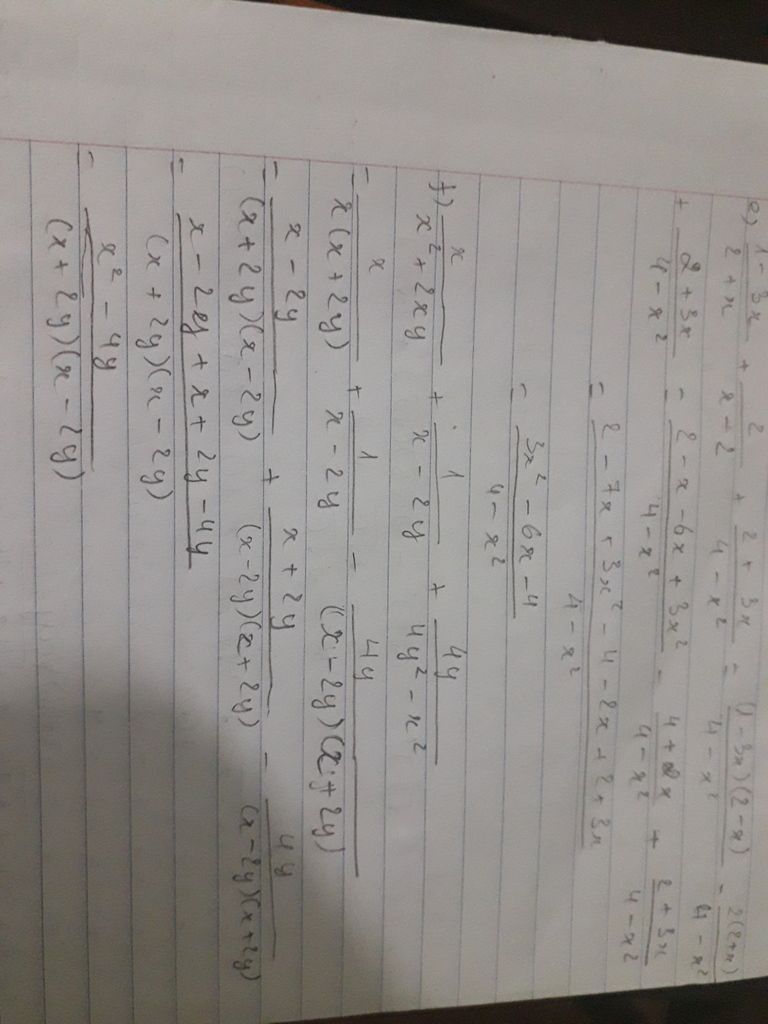 e) (1 - 3x)/(2 + x) + 2/(x - 2) + (2 + 3x)/(4 - x²) = ((1 - 3x)(2 - x))/(4 - x²) - (2(2 + x))/(4 - x²)
+ (2 + 3x)/(4 - x²) = (2 - x - 6x + 3x²)/(4 - x²) - (4 + 2x)/(4 - x²) + (2 + 3x)/(4 - x²)
= (2 - 7x + 3x² - 4 - 2x + 2 + 3x)/(4 - x²)
= (3x² - 6x - 4)/(4 - x²)
f) x/(x² + 2xy) + 1/(x - 2y) + 4y/(4y² - x²)
= x/(x(x + 2y)) + 1/(x - 2y) - 4y/((x - 2y)(x + 2y))
= (x - 2y)/((x + 2y)(x - 2y)) + (x + 2y)/((x - 2y)(x + 2y)) - 4y/((x - 2y)(x + 2y))
= (x - 2y + x + 2y - 4y)/((x + 2y)(x - 2y))
= (x² - 4y)/((x + 2y)(x - 2y))